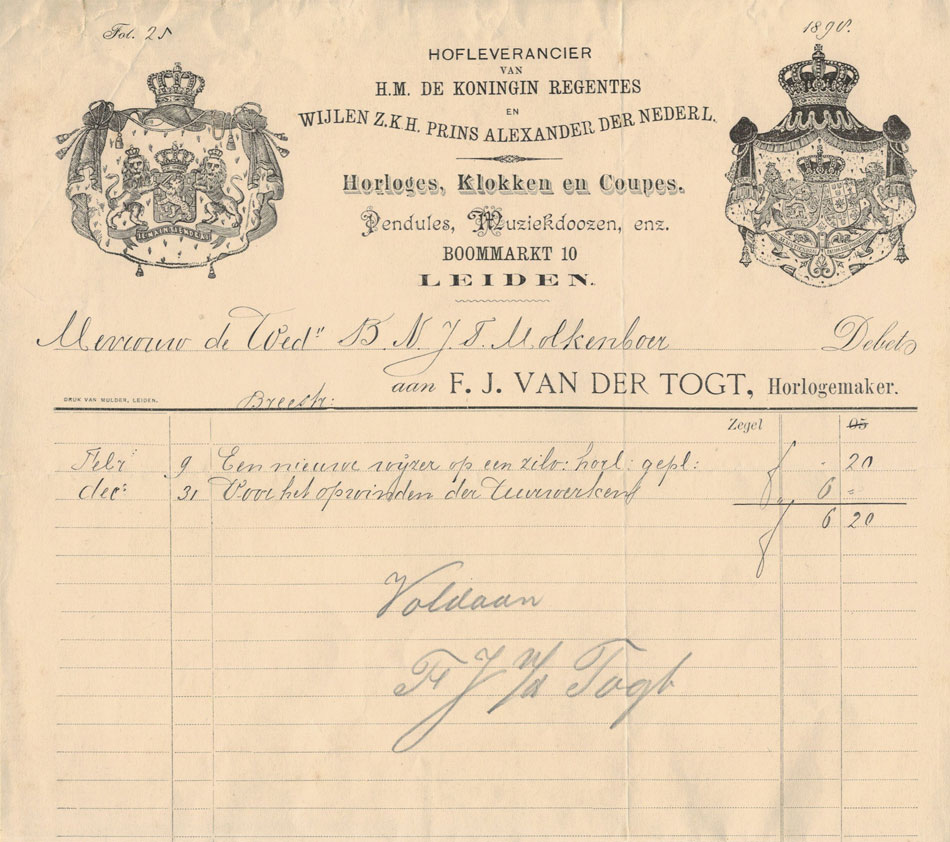 Fol. 25
1898.
HOFLEVERANCIER
VAN
H.M. DE KONINGIN REGENTES
EN
WIJLEN Z.K.H. PRINS ALEXANDER DER NEDERL.
Horloges, Klokken en Coupes.
Pendules, Muziekdoozen, enz.
BOOMMARKT 10
LEIDEN.
JE MAINTIENDRAI
Mevrouw de Wedn B. N. J. T. Molkenboer Debet
aan F. J. VAN DER TOGT, Horlogemaker.
DRUK VAN MULDER, LEIDEN.
Breestr:
Zegel 05
Febr 9 Een nieuwe wyzer op een zilv: horl: gepl: f " 20
dec: 31 Voor het opwinden der Uurwerken f 6 "
f 6 20
Voldaan
F J v/d Togt